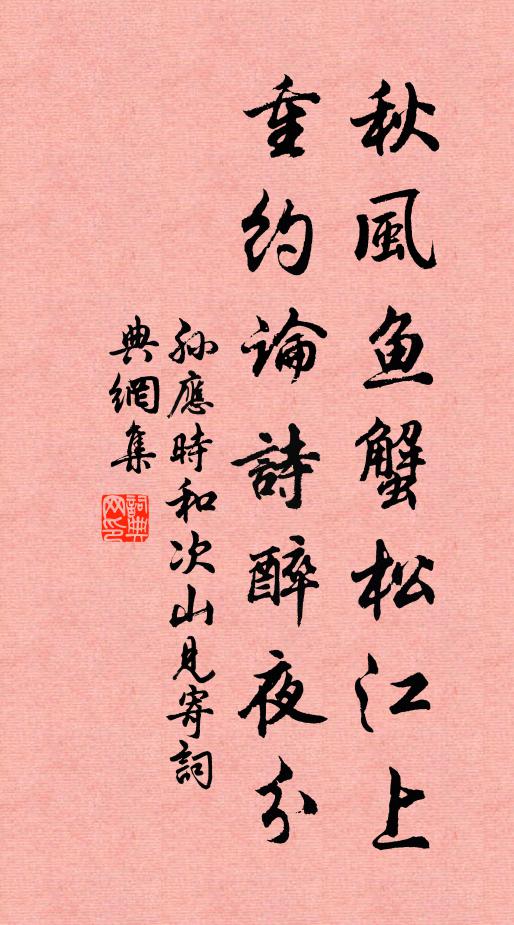 秋風鱼蟹松江上
重約論詩醉夜分
孙應時和次山見寄詞
典網集
詞典
网印